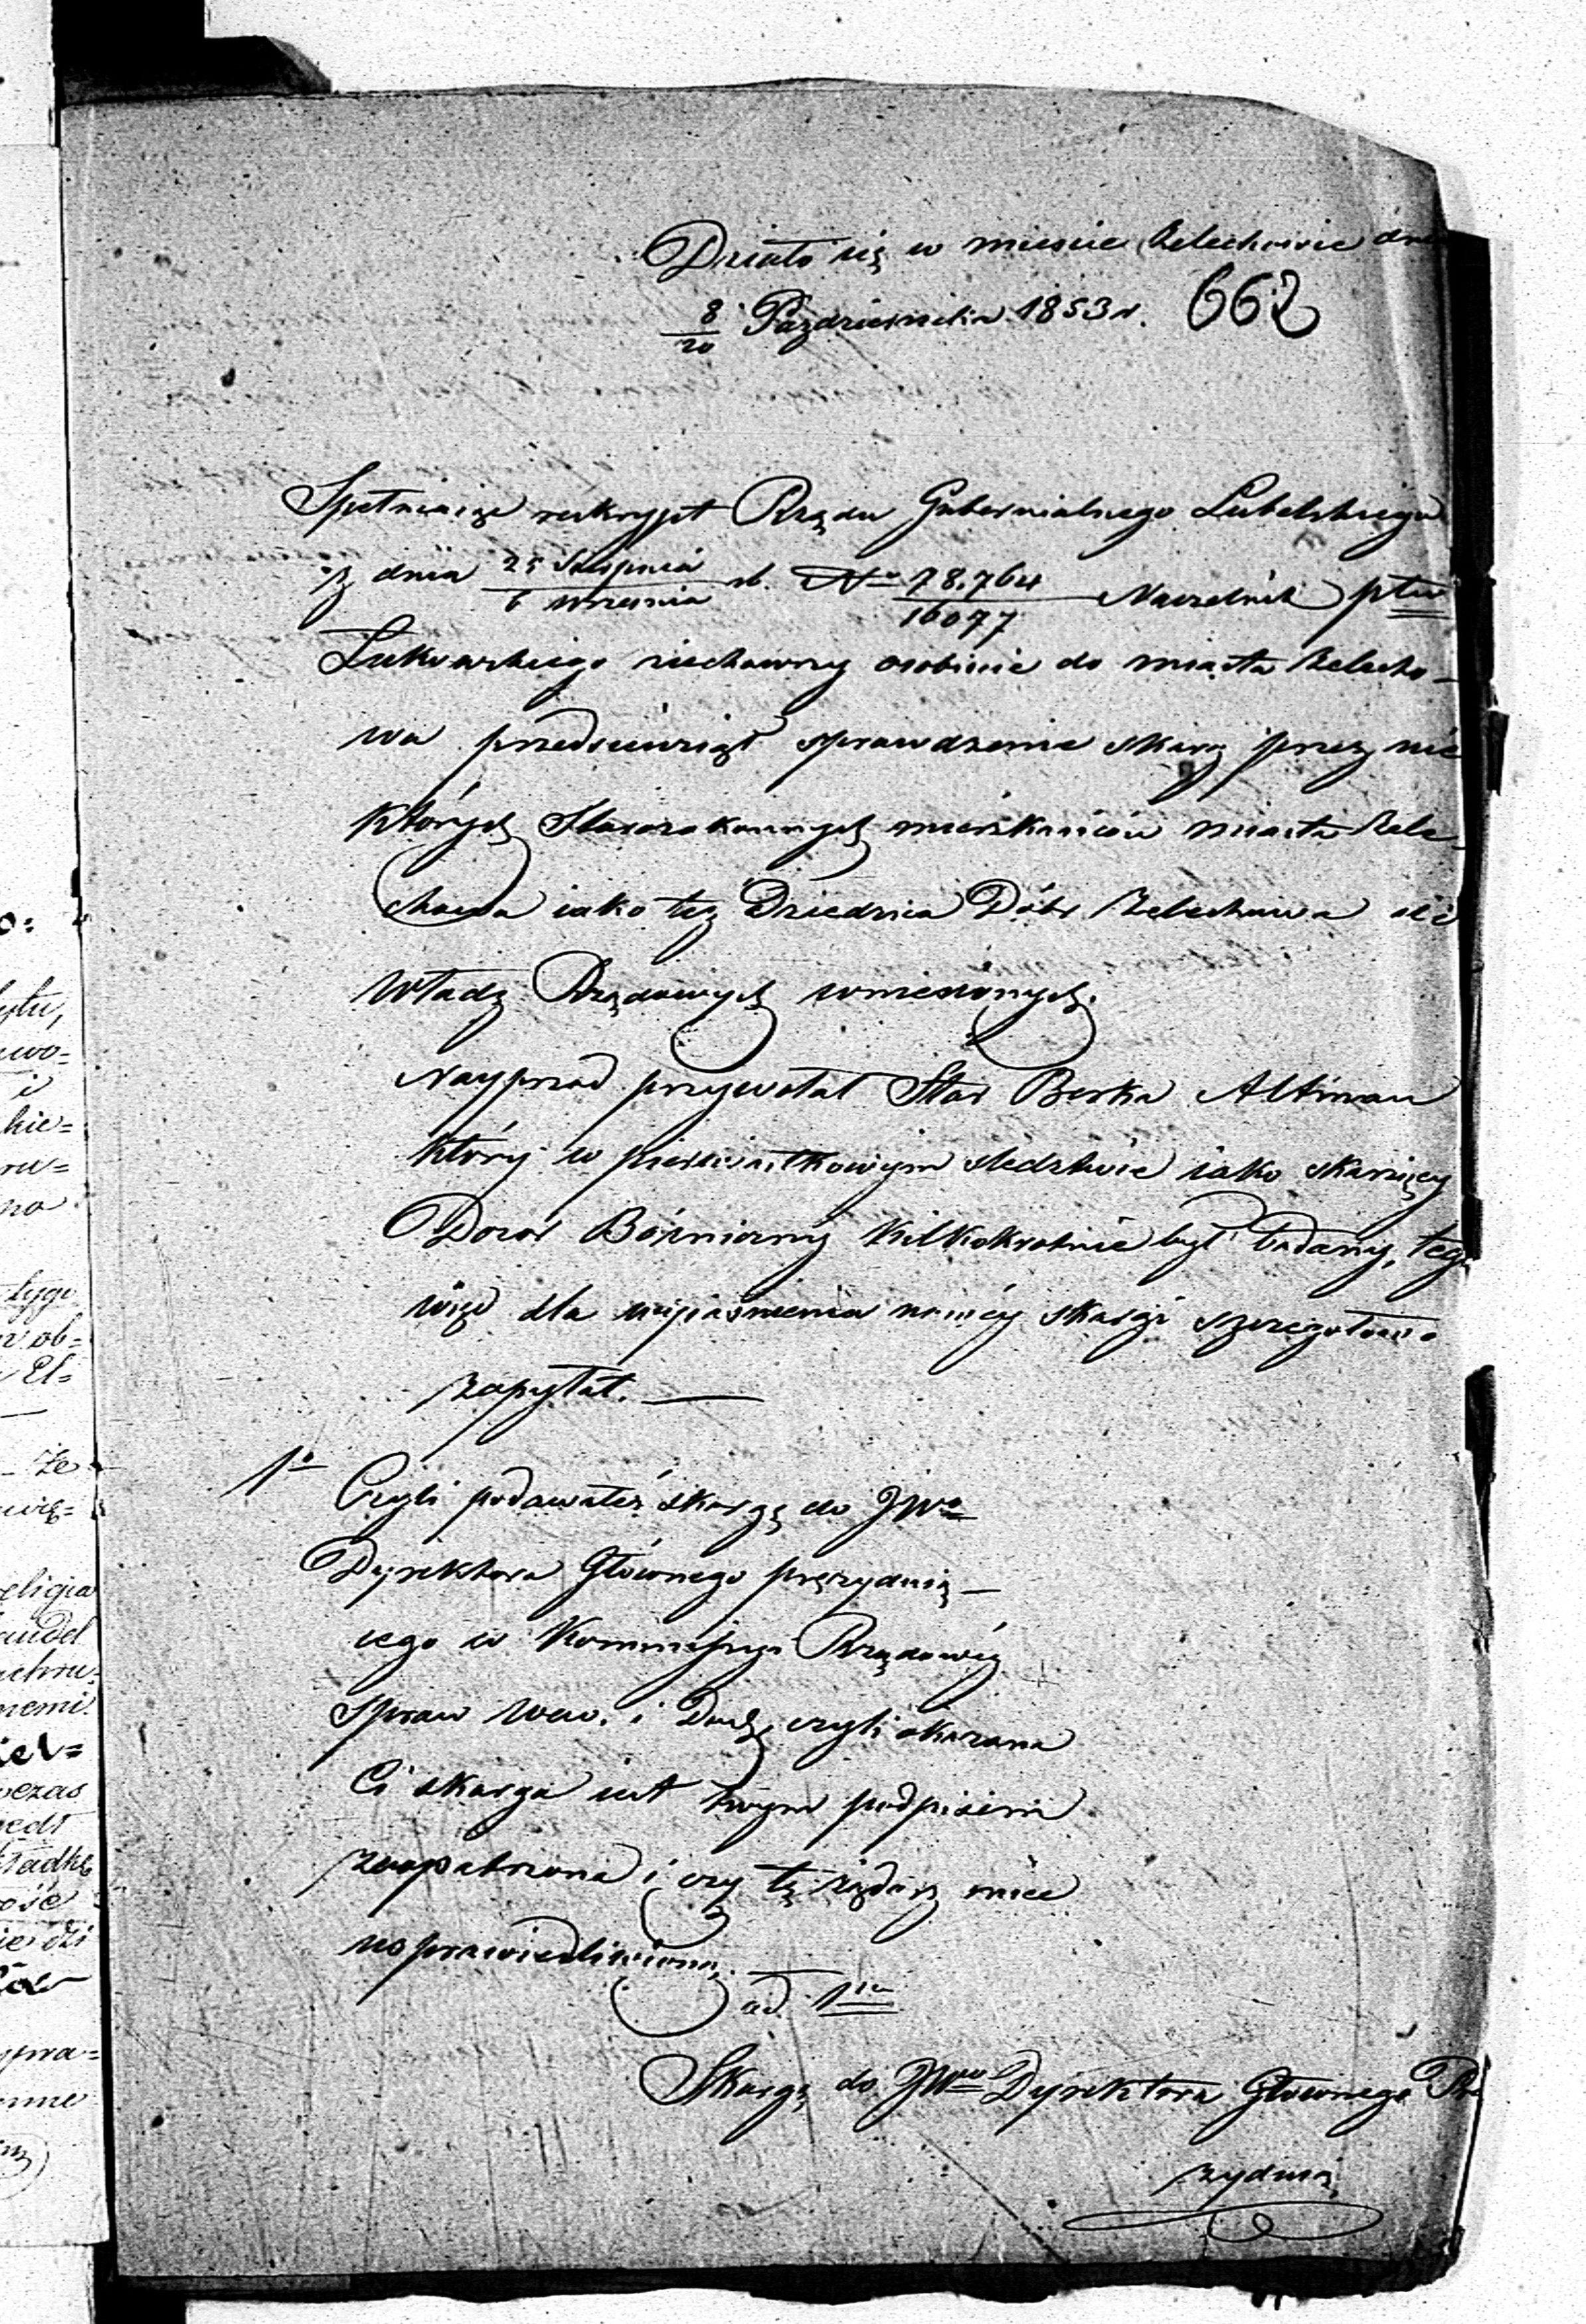 Działo się w mieście Żelechowie dnia
8/20 Października 1853 r. 662
Spełniając reskrypt Rządu Gubernialnego Lubelskiego
z dnia 25 Sierpnia/6 Września rb. No 78,764/16077 Naczelnik ptu
Łukowskiego ziechawszy osobiście do miasta Żelecho-
wa przedsiewziął sprawdzenie skarg przez nie
których Starozakonnych mieszkańców miasta Żele-
chowa iako też Dziedzica Dóbr Żelechowa do
Władz Rządowych wniesionych.
Nayprzod przywołał Star Berka Altman
który w pierwiastkowym śledztwie iako skarżący
Dozór Bóżniczny kilkakrotnie był badany, tego
więc dla wyjaśnienia skargi szczegółowo
zapytał. —
1o Czyli podawałeś skargę do JWo
Dyrektora Głównego prezyduią-
cego w Kommissyi Rządowéy
Spraw Wew. i Duch, czyli okazana
Ci skarga iest twym podpisem
zaopatrzona i czy tę żądasz mieć
usprawiedliwioną. —
ad. 1um
Skargę do JWgo Dyrektora Głównego Pre
zyduią